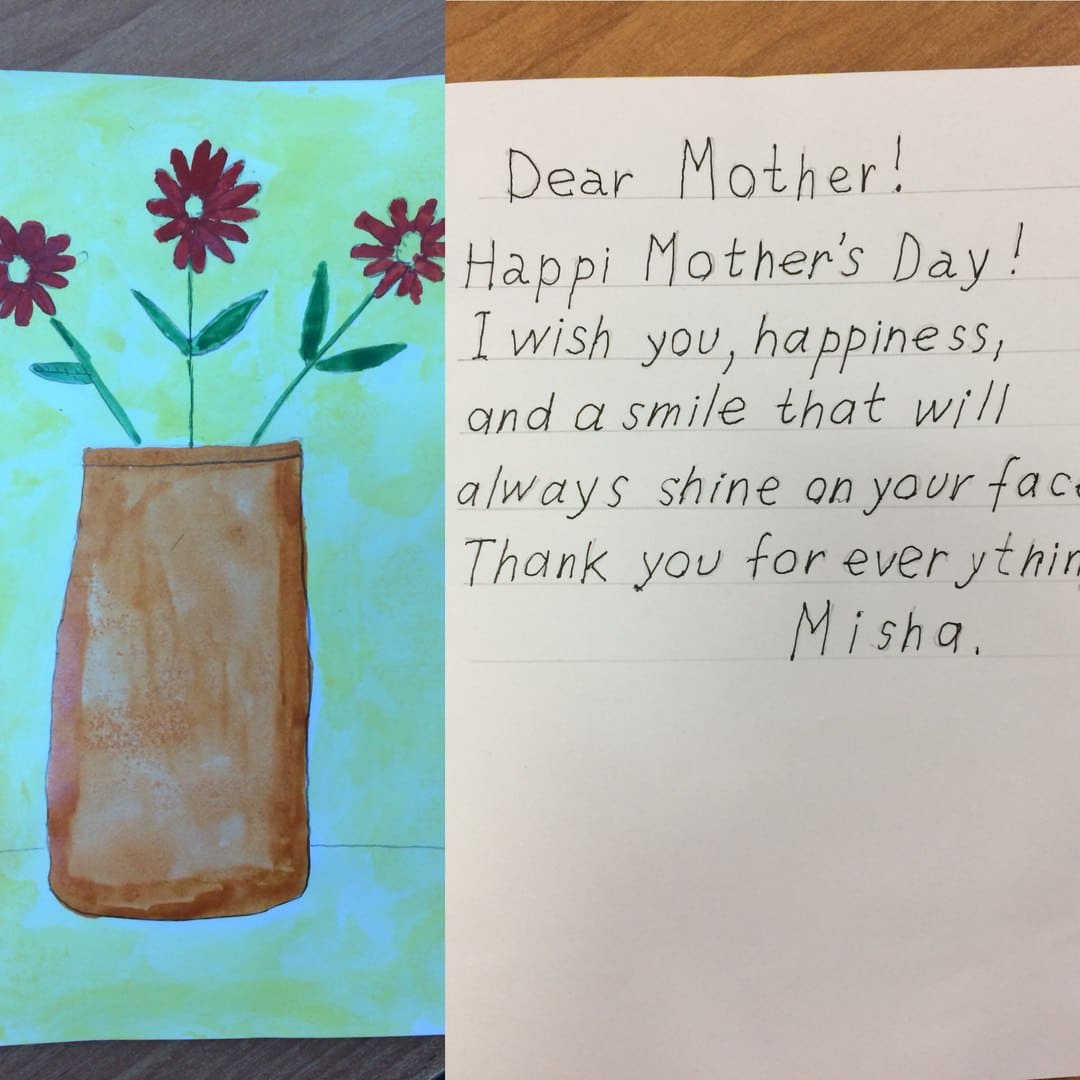 Dear Mother!
Happi Mother's Day!
I wish you, happiness,
and a smile that will
always shine on your fac
Thank you for everythin
Misha.